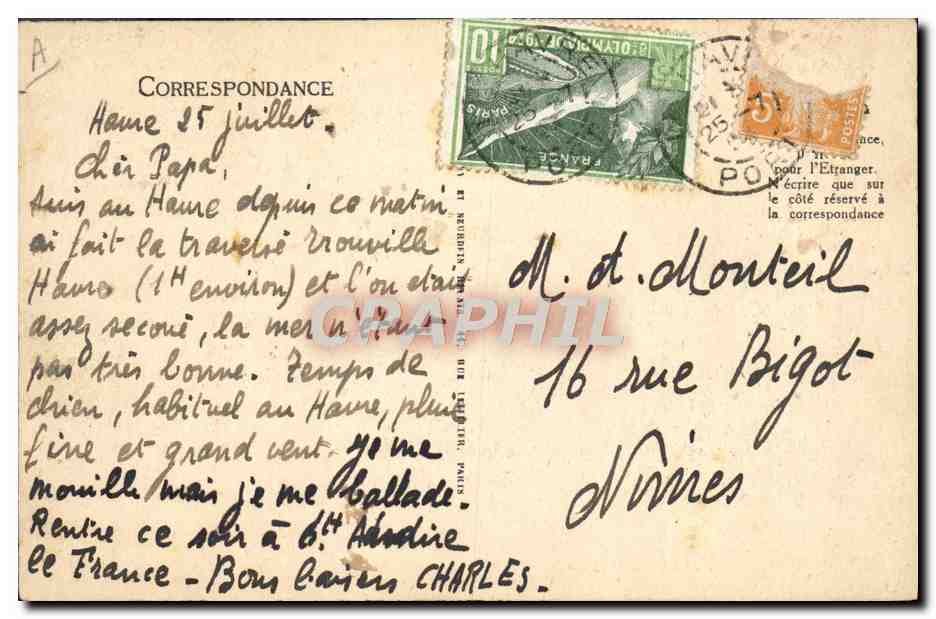 A
CORRESPONDANCE
Havre 25 juillet.
Cher Papa,
Suis au Havre depuis ce matin
ai fait la traversé Trouville
Havre (1H environ) et l'on était
assez secoué, la mer n'étant
pas très bonne. Temps de
chien, habituel au Havre, pluie
fine et grand vent. Je me
mouille mais je me ballade.
Rentre ce soir à 6H
le France - Bons baisers CHARLES.
10
8e OLYMPIADE 1924
POSTES
PARIS
FRANCE
25
PO
5
POSTES
25
PO
pour l'Etranger.
N'écrire que sur
le côté réservé à
la correspondance
ET NEURDEIN
PARIS
M. A. Monteil
16 rue Bigot
Nimes
CPAPHIL